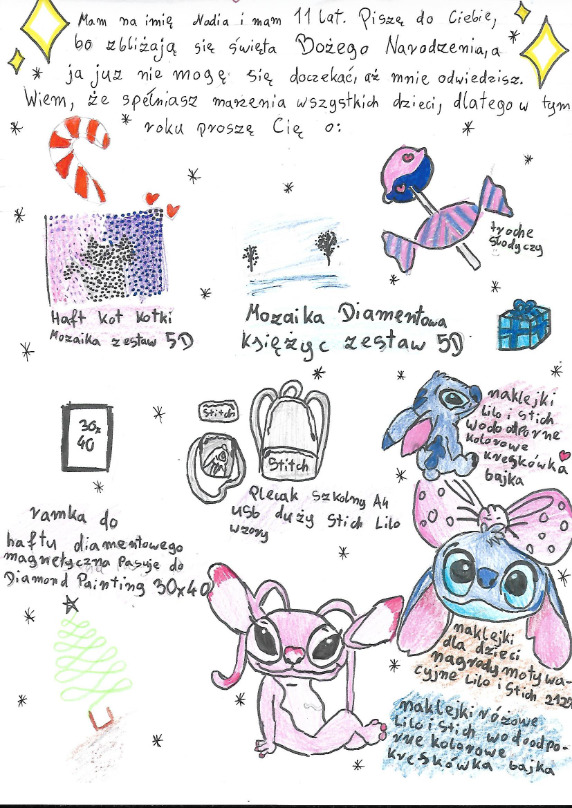 Mam na imię Nadia i mam 11 lat. Piszę do Ciebie,
bo zbliżają się święta Bożego Narodzenia, a
ja już nie mogę się doczekać, aż mnie odwiedzisz.
Wiem, że spełniasz marzenia wszystkich dzieci, dlatego w tym
roku proszę Cię o:
trochę
słodyczy
Haft kot kotki
Mozaika zestaw 5D
Mozaika Diamentowa
Księżyc zestaw 5D
30x
40
Stitch
Stitch
naklejki
Lilo i Stich
wodoodporne
kolorowe
kreskówka
bajka
Plecak szkolny A4
USB duży Stich Lilo
wzory
ramka do
haftu diamentowego
magnetyczna pasuje do
Diamond Painting 30x40
naklejki
dla dzieci
nagrody motywa-
cyjne Lilo i Stich
naklejki różowe
Lilo i Stich wodoodpo-
rne kolorowe
kreskówka bajka